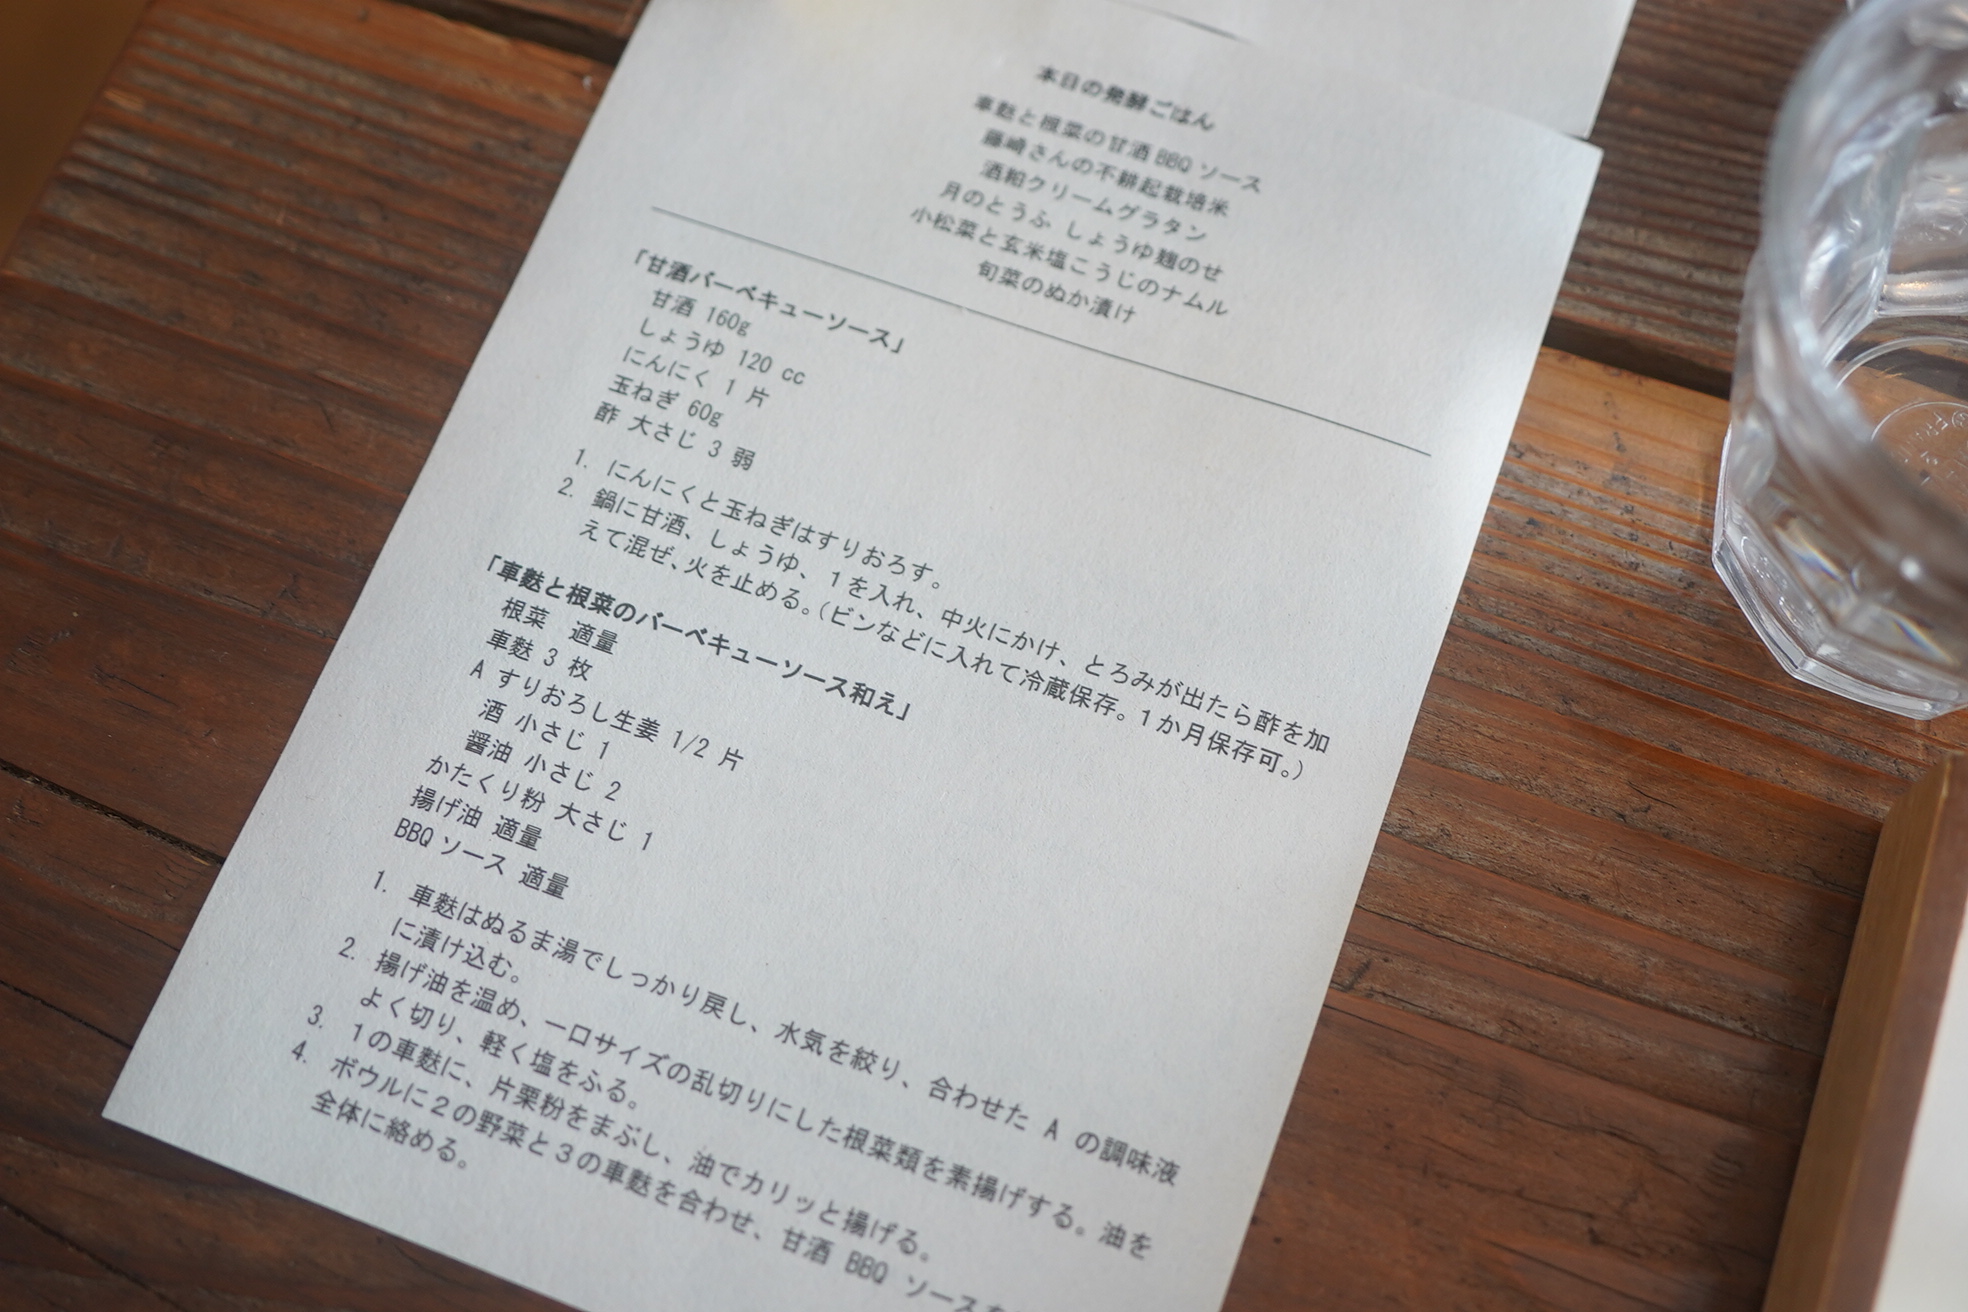 本日の発酵ごはん
車麩と根菜の甘酒 BBQ ソース
藤崎さんの不耕起栽培米
酒粕クリームグラタン
月のとうふ しょうゆ麹のせ
小松菜と玄米塩こうじのナムル
旬菜のぬか漬け
「甘酒バーベキューソース」
甘酒 160g
しょうゆ 120 cc
にんにく 1 片
玉ねぎ 60g
酢 大さじ 3 弱
1. にんにくと玉ねぎはすりおろす。
2. 鍋に甘酒、しょうゆ、1を入れ、中火にかけ、とろみが出たら酢を加
えて混ぜ、火を止める。(ビンなどに入れて冷蔵保存。1か月保存可。)
「車麩と根菜のバーベキューソース和え」
根菜 適量
車麩 3 枚
A すりおろし生姜 1/2 片
酒 小さじ 1
醤油 小さじ 2
かたくり粉 大さじ 1
揚げ油 適量
BBQ ソース 適量
1. 車麩はぬるま湯でしっかり戻し、水気を絞り、合わせた A の調味液
に漬け込む。
2. 揚げ油を温め、一口サイズの乱切りにした根菜類を素揚げする。油を
よく切り、軽く塩をふる。
3. 1の車麩に、片栗粉をまぶし、油でカリッと揚げる。
4. ボウルに2の野菜と3の車麩を合わせ、甘酒 BBQ ソースを
全体に絡める。